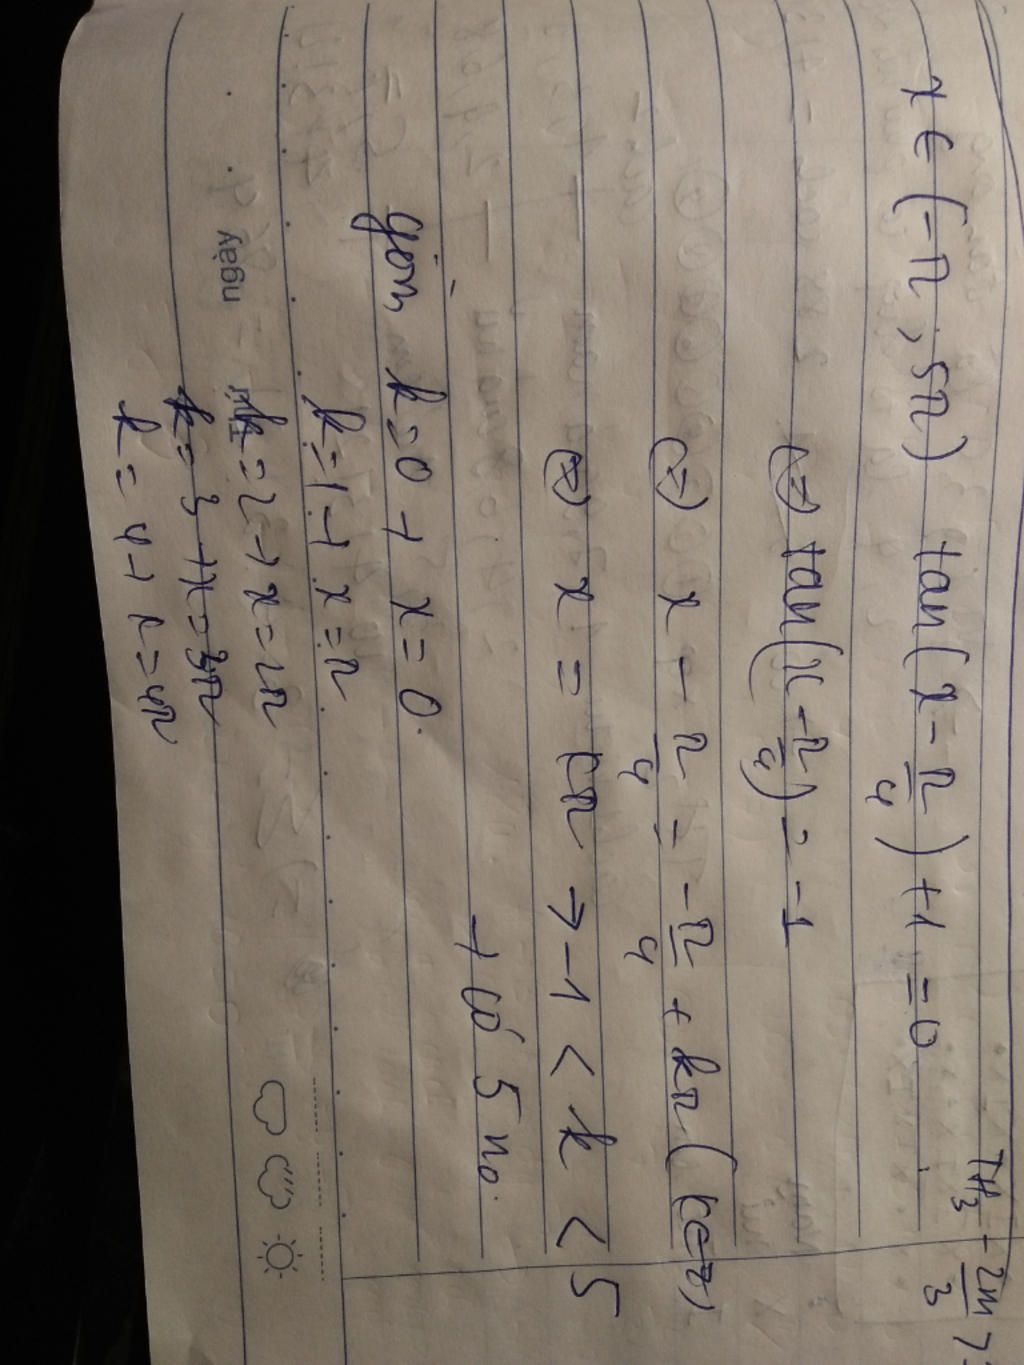 TH3 -2m/3 >
x ∈ (-π, 5π) tan(x - π/4) + 1 = 0
(=) tan(x - π/4) = -1
(=) x - π/4 = -π/4 + kπ (k∈Z)
(=) x = kπ → -1 < k < 5
→ có 5 no.
gồm k=0 → x=0.
k=1 → x=π
k=2 → x=2π
k=3 → x=3π
k=4 → x=4π
ngày